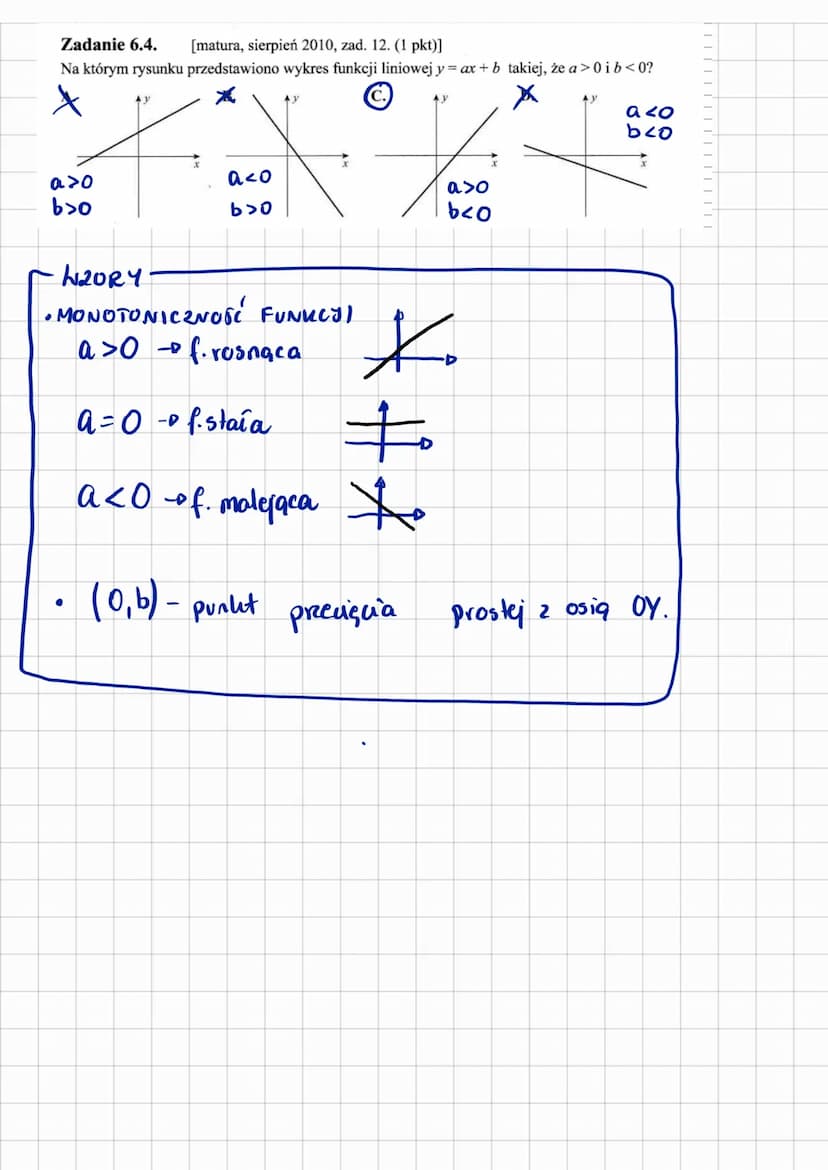 Zadanie 6.4. [matura, sierpień 2010, zad. 12. (1 pkt)]
Na którym rysunku przedstawiono wykres funkcji liniowej y = ax + b takiej, że a > 0 i b < 0?
y y C. y y
x x x x
a>0 a<0 a>0 a<0
b>0 b>0 b<0 b<0
WZORY
• MONOTONICZNOŚĆ FUNKCJI
a>0 → f. rosnąca
a=0 → f. stała
a<0 → f. malejąca
• (0,b) - punkt przecięcia prostej z osią OY.